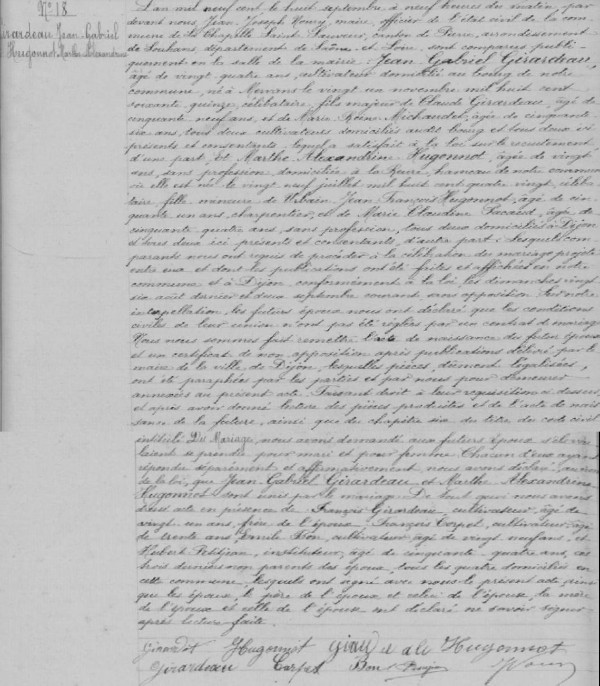 N° 18
Girardeau Jean Gabriel
Hugonnot Marthe Alexandrine
L'an mil neuf cent le huit septembre à neuf heures du matin, par
devant nous, Jean Joseph maire, officier de l'état civil de la com
mune de La Chapelle Saint Sauveur, canton de Pierre, arrondissement
de Louhans, département de Saône et Loire, sont comparus publi
quement en la salle de la mairie Jean Gabriel Girardeau,
âgé de vingt quatre ans, cultivateur domicilié au bourg de notre
commune, né à Mervans le vingt un novembre mil huit cent
soixante quinze, célibataire, fils majeur de Claude Girardeau, âgé de
cinquante neuf ans, et de Marie Reine Michaudet, âgée de cinquante
six ans, tous deux cultivateurs domiciliés audit bourg et tous deux ici
présents et consentants, lequel a satisfait à la loi sur le recrutement
d'une part, et Marthe Alexandrine Hugonnot, âgée de vingt
ans, sans profession, domiciliée à la hameau de notre commune
où elle est née le vingt neuf juillet mil huit cent quatre vingt, céliba
taire fille mineure de Urbain Jean François Hugonnot, âgé de cin
quante un ans, charpentier, et de Marie Claudine âgée de
cinquante quatre ans, sans profession, tous deux domiciliés à Dijon
et tous deux ici présents et consentants, d'autre part; lesquels com
parants nous ont requis de procéder à la célébration du mariage projeté
entre eux et dont les publications ont été faites et affichées en notre
commune et à Dijon conformément à la loi les dimanches vingt
six août dernier et deux septembre courant sans opposition. Sur notre
interpellation, les futurs époux nous ont déclaré que les conditions
civiles de leur union n'ont pas été réglées par un contrat de mariage
Nous nous sommes fait remettre l'acte de naissance du futur époux
et un certificat de non opposition après publications délivré par le
maire de la ville de Dijon, lesquelles pièces, dûment légalisées,
ont été paraphées par les parties et par nous pour demeurer
annexées au présent acte. Faisant droit à leur réquisition ci dessus
et après avoir donné lecture des pièces produites et de l'acte de nais
sance de la future, ainsi que du chapitre six du titre du code civil
intitulé Du Mariage, nous avons demandé aux futurs époux s'ils veu
laient se prendre pour mari et pour femme. Chacun d'eux ayant
répondu séparément et affirmativement nous avons déclaré au nom
de la loi, que Jean Gabriel Girardeau et Marthe Alexandrine
Hugonnot sont unis par le mariage. De tout quoi nous avons
dressé acte en présence de François Girardeau, cultivateur, âgé de
vingt un ans, frère de l'époux; François Carpet, cultivateur, âgé
de trente ans, Emile Bon, cultivateur, âgé de vingt neuf ans, et
Hubert Petitjean, instituteur, âgé de cinquante quatre ans, ces
trois derniers non parents des époux, tous les quatre domiciliés en
cette commune, lesquels ont signé avec nous le présent acte ainsi
que les époux, le père de l'époux et celui de l'épouse, la mère
de l'époux et celle de l'épouse ont déclaré ne savoir signer
après lecture faite.
Hugonnot Hugonnot
Girardeau Carpet Bon